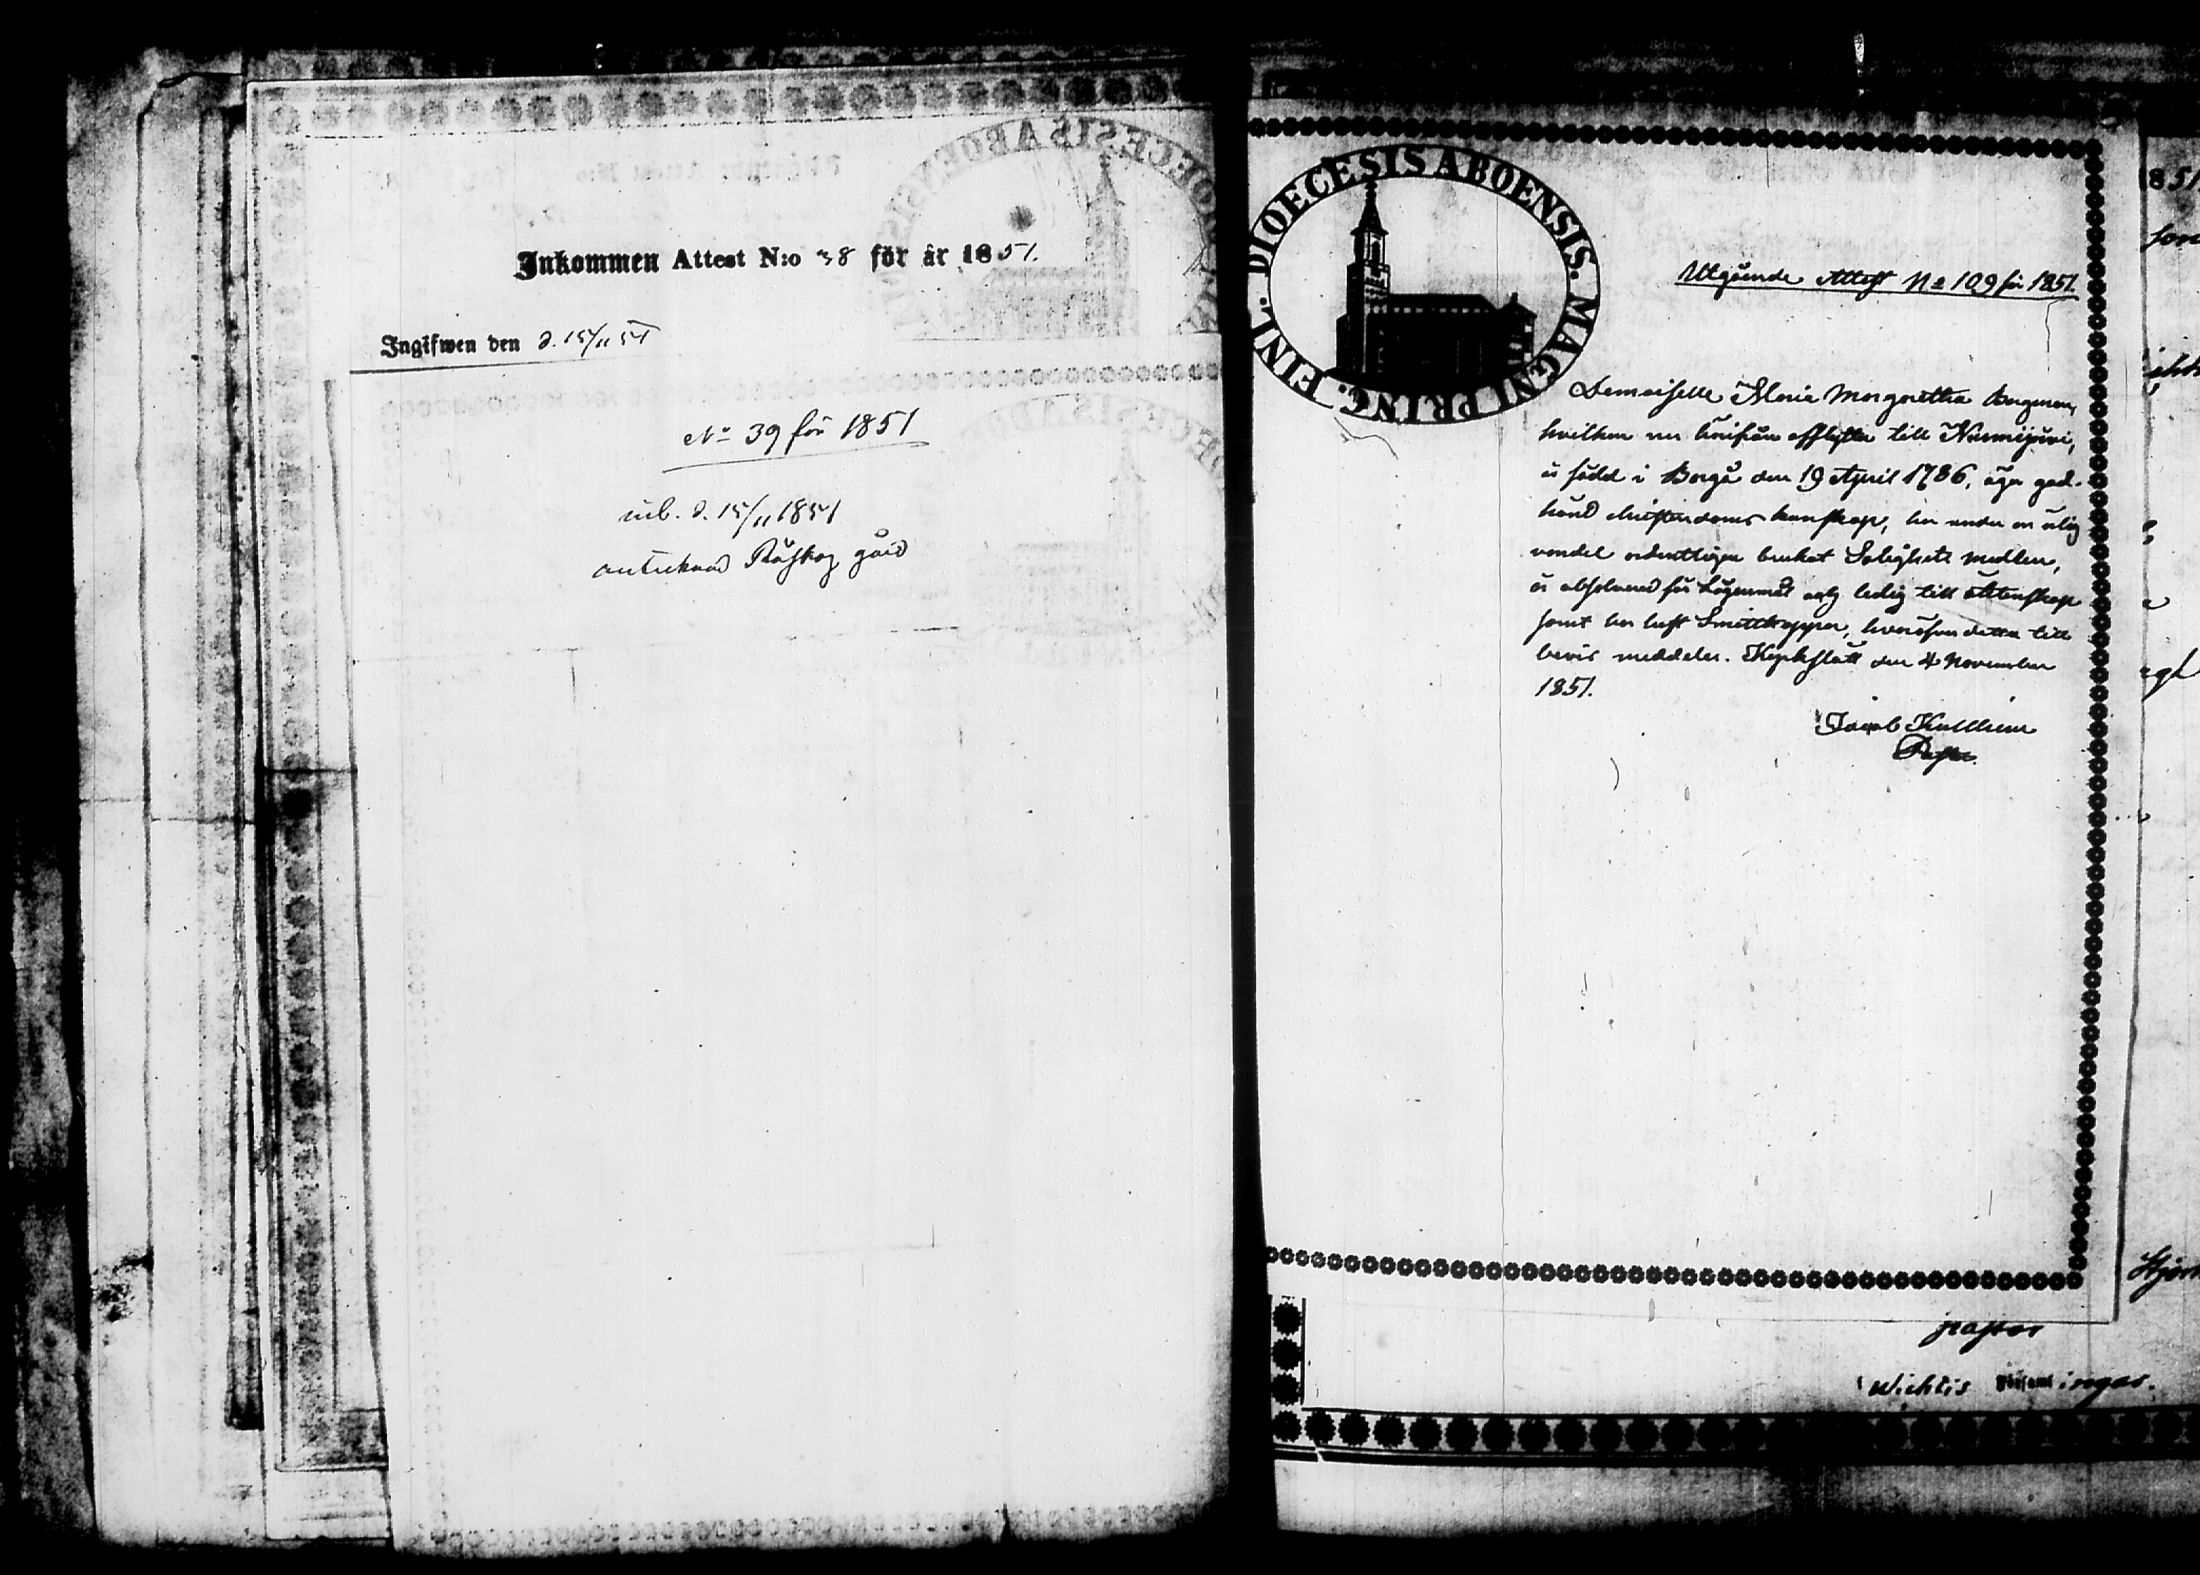 Inkommen Attest N:o 38 för år 1851.
Ingifwen den d. 15/11 51
No 39 för 1851
inl. d. 15/11 1851
antecknad Röjskog gård
DIOECESIS ABOENSIS. MAGNI PRINC. FINL.
Utgående Attest No 109 för 1851.
Demoiselle Maria Margaretha Bergman,
hvilken nu härifrån afflyttar till Nurmijärvi,
är född i Borgå den 19 April 1786, äger god-
känd christendoms kunskap, har under en ärlig
vandel ordentligen brukat Salighets medlen,
är absolverad för Lägersmål och ledig till äktenskap
samt har haft Smittkoppor, hvarifrån detta till
bevis meddelas. Kyrkslätt den 4 November
1851.
Jacob
Pastor.
pastor
Wichtis Församlingar.
851
Hjort